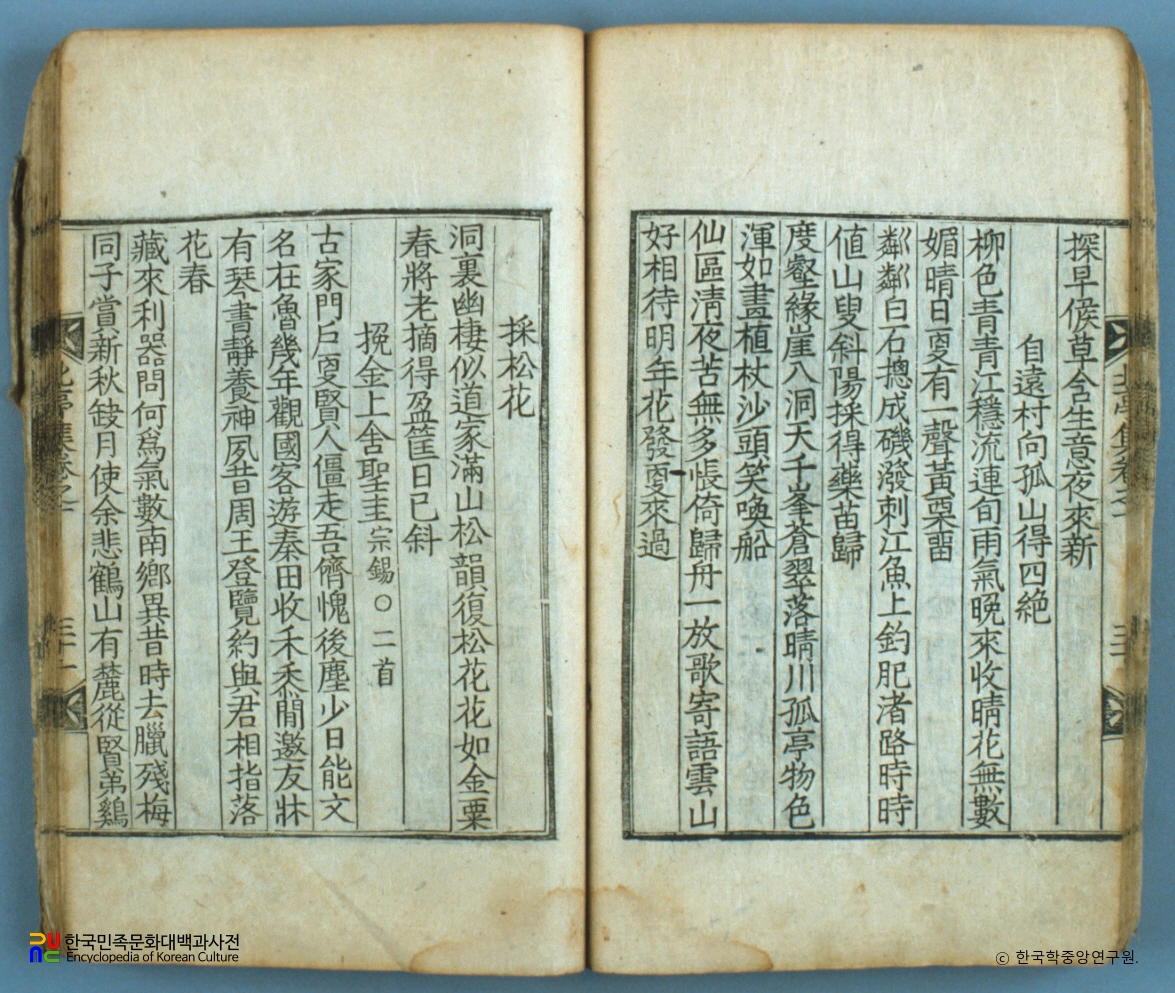 探早候草含生意夜來新
自遠村向孤山得四絶
柳色青青江穩流連旬雨氣晚來收晴花無數
媚晴日更有一聲黃栗留
粼粼白石摠成磯潑刺江魚上釣肥渚路時時
値山叟斜陽採得藥苗歸
度壑緣崖八洞天千峯蒼翠落晴川孤亭物色
渾如畫植杖沙頭笑喚船
仙區淸夜苦無多悵倚歸舟一放歌寄語雲山
好相待明年花發更來過
採松花
洞裏幽棲似道家滿山松韻復松花花如金粟
春將老摘得盈筐日已斜
挽金上舍聖圭宗錫○二首
古家門戶更賢人僵走吾儕愧後塵少日能文
名在魯幾年觀國客游秦田收禾黍閒邀友牀
有琴書靜養神夙昔周王登覽約與君相指落
花春
藏來利器問何爲氣數南鄉異昔時去臘殘梅
同子賞新秋缺月使余悲鶴山有麓從賢弟鷄
北亭集卷之
三十一
한국민족문화대백과사전
Encyclopedia of Korean Culture
© 한국학중앙연구원.